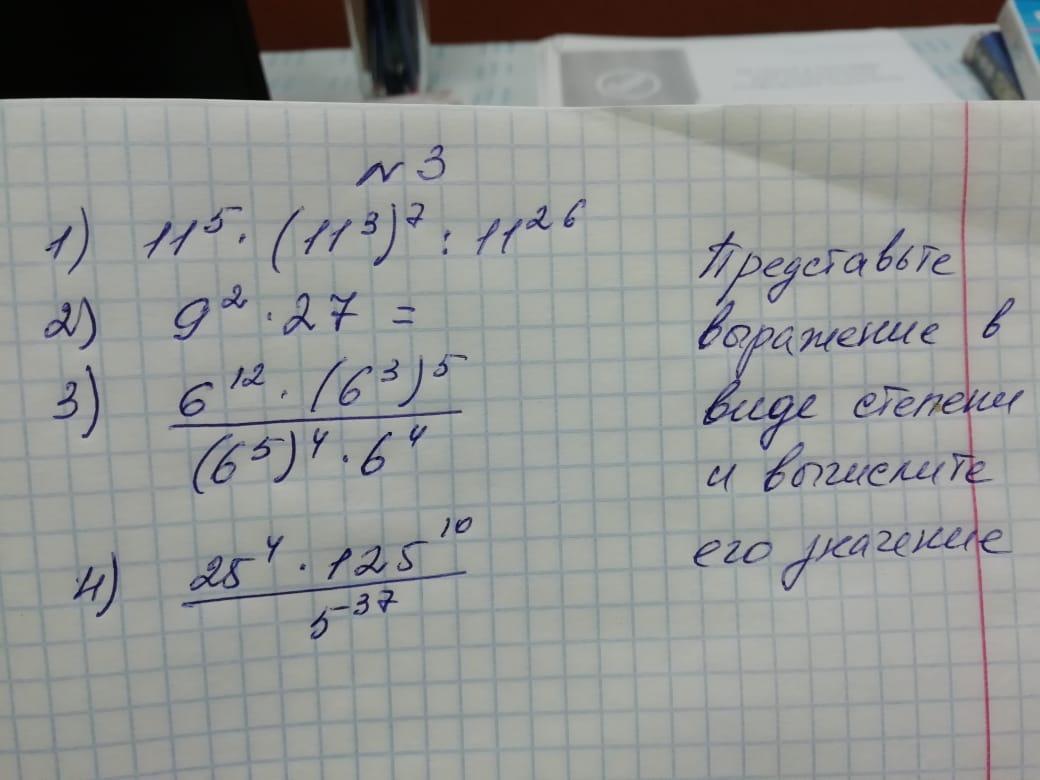 N 3
1) 11⁵ · (11³)⁷ : 11²⁶
2) 9² · 27 =
3) 6¹² · (6³)⁵
(6⁵)⁴ · 6⁴
4) 25⁴ · 125¹⁰
5⁻³⁷
Представьте
выражение в
виде степени
и вычислите
его значение